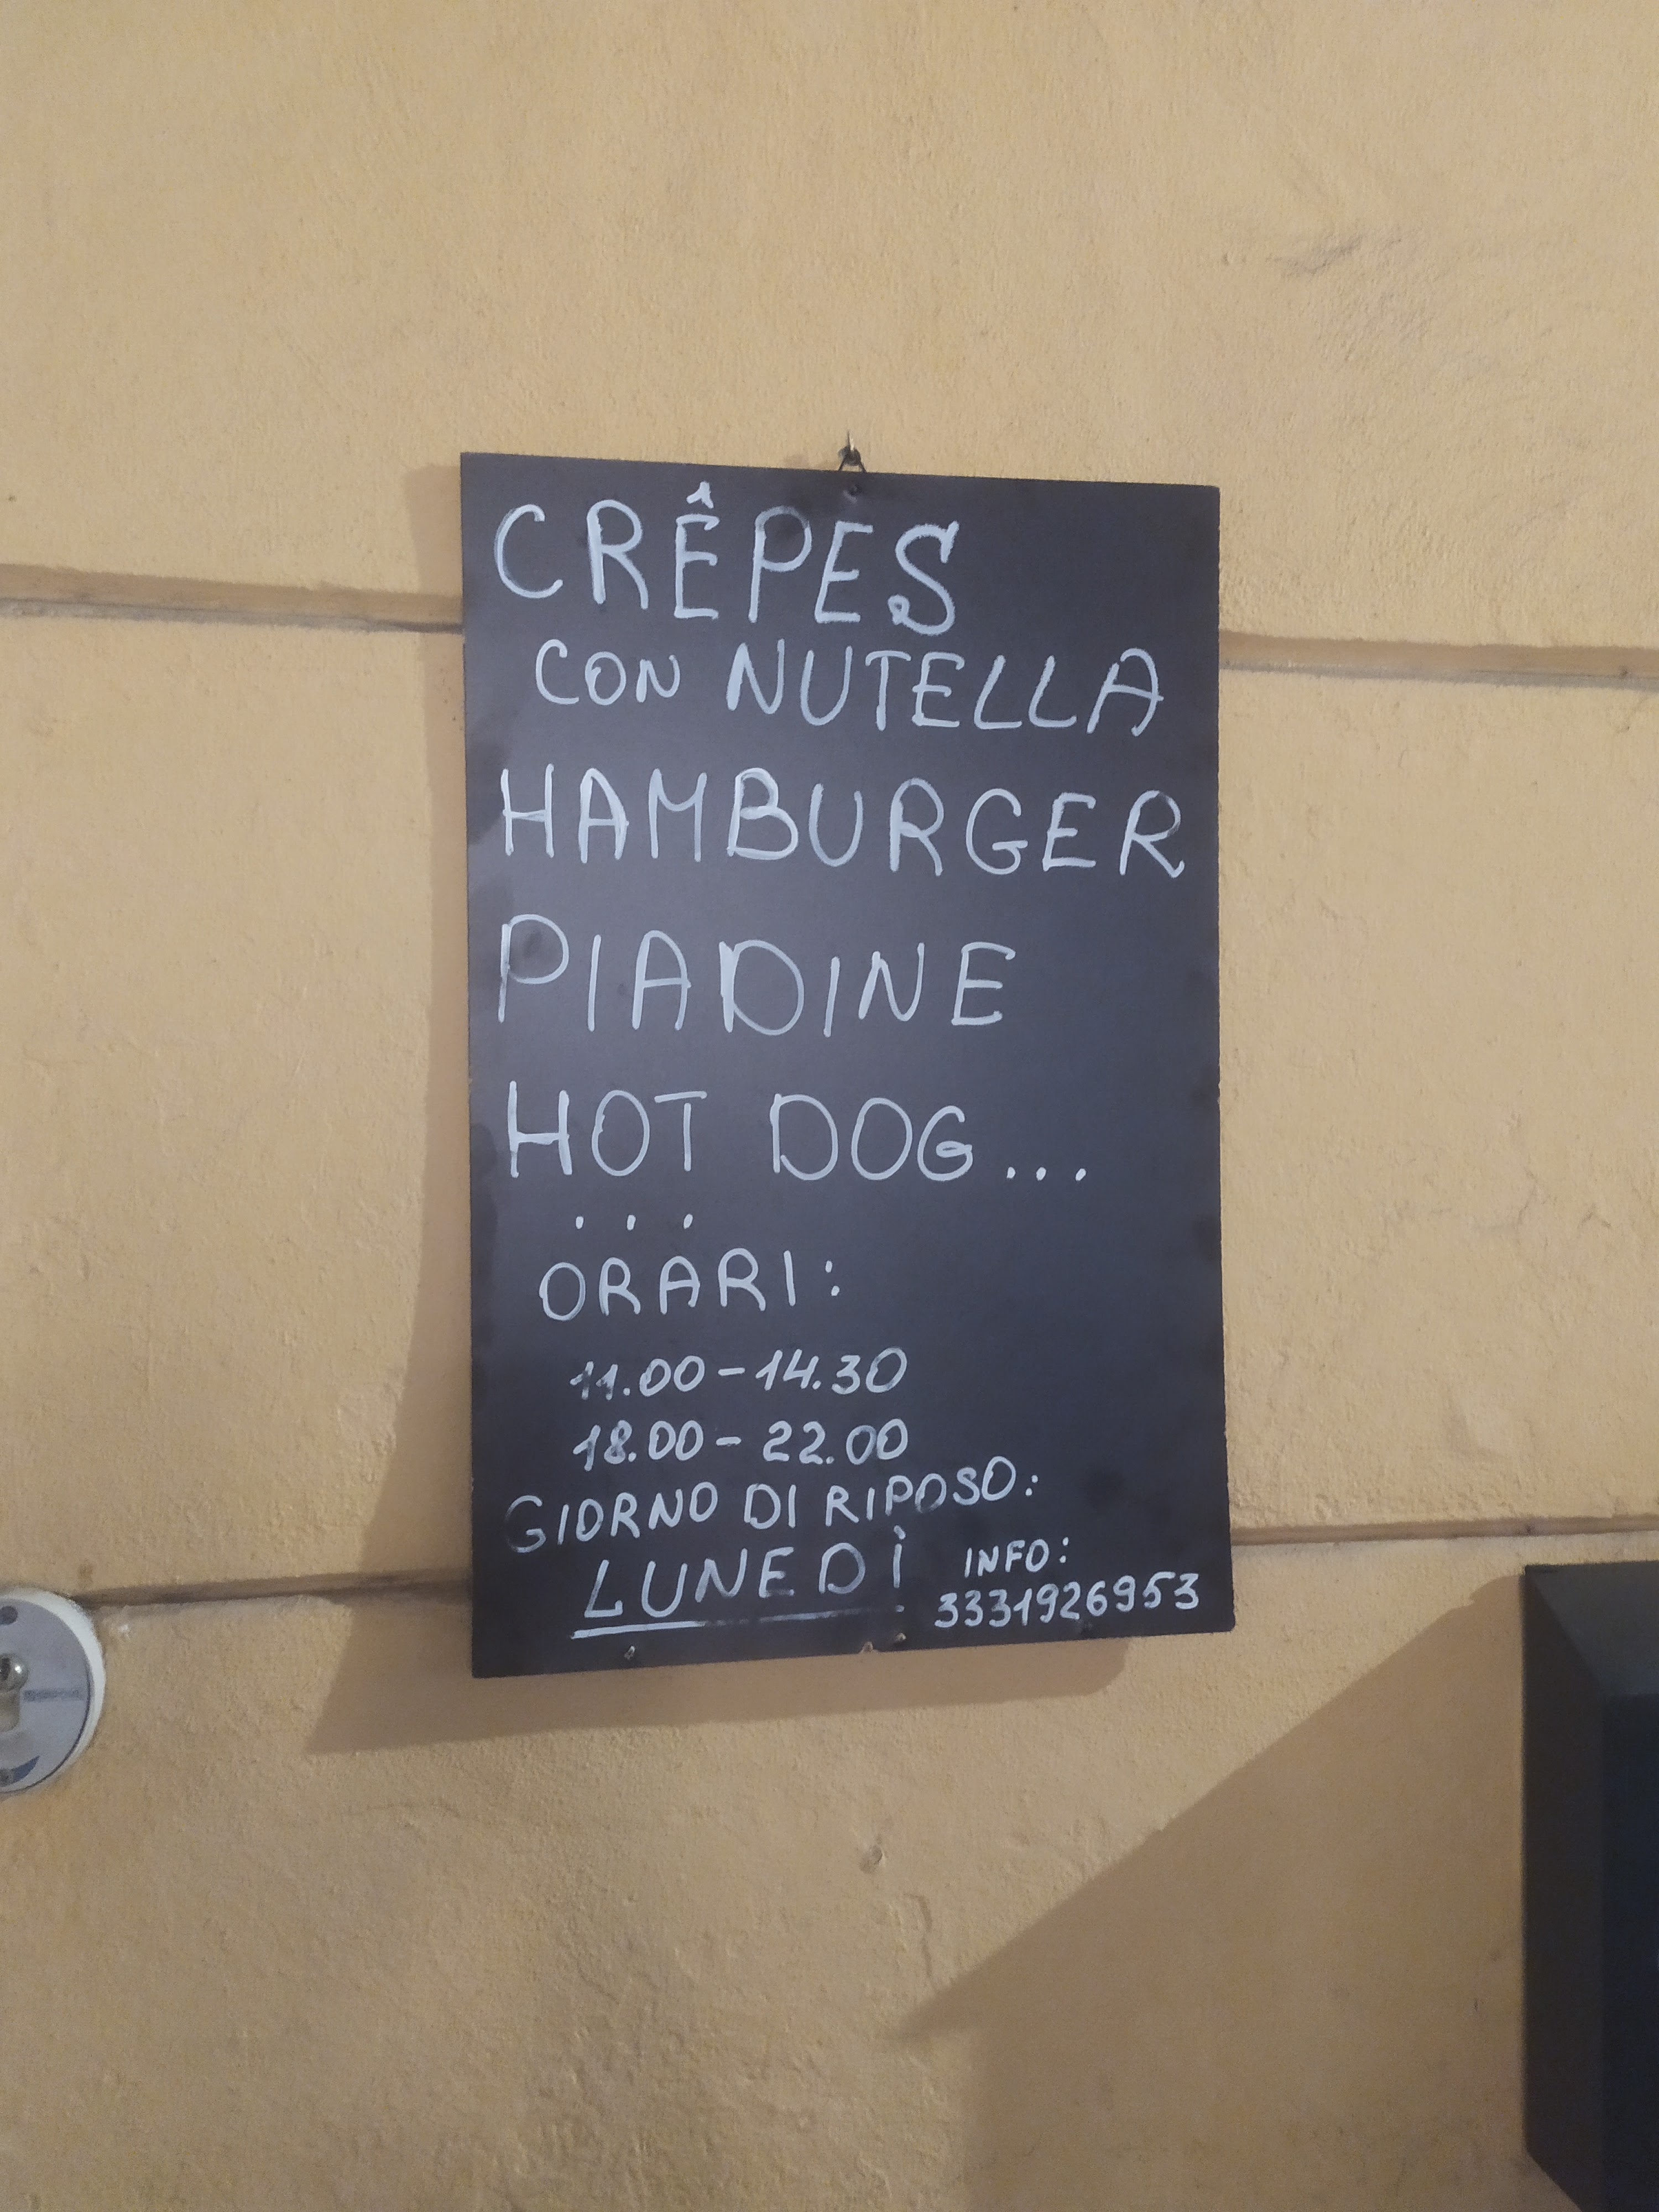 CRÊPES
CON NUTELLA
HAMBURGER
PIADINE
HOT DOG...
...
ORARI:
11.00-14.30
18.00-22.00
GIORNO DI RIPOSO:
LUNEDÌ
INFO:
3331926953